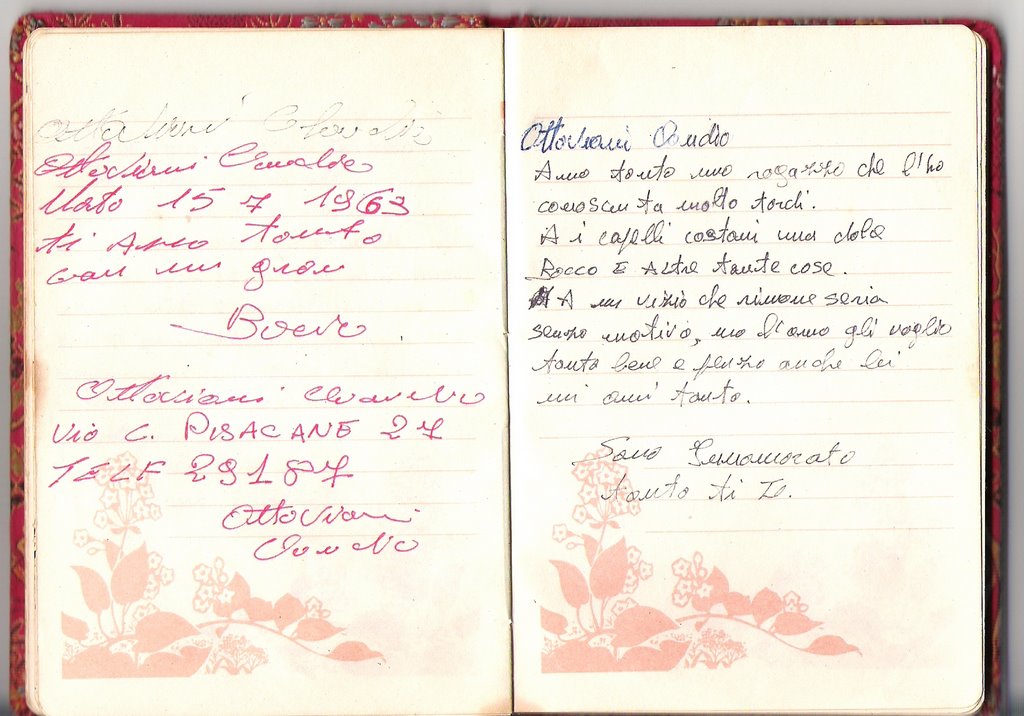 Ottaviani Claudio
Ottaviani Claudio
Nato 15 7 1963
ti Amo tanto
con un gran
Bacio.
Ottaviani Claudio
Via C. PISACANE 27
TELF 29187
Ottaviani
Claudio
Ottaviani Claudio
Amo tanto una ragazza che l'ho
conosciuta molto tardi.
A i capelli castani una dolce
Bocca E Altre tante cose.
A un vizio che rimane seria
senza motivo, ma l'amo gli voglio
tanto bene e penzo anche lei
mi ami tanto.
Sono Innamorato
tanto ti